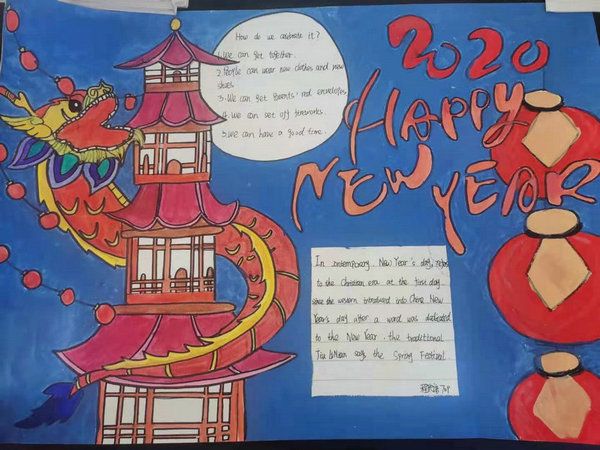 How do we celebrate it?
1.We can get together.
2.People can wear new clothes and new
shoes
3.We can get parents' red envelopes
4.We can set off fireworks.
5.We can have a good time.
2020
HAPPY
NEW YEAR
In contemporary New Year's day, refers
to the Christian era at the first day.
since the western introduced into China New
Year's day after a word was dedicated
to the New Year. the traditional
says the Spring Festival.